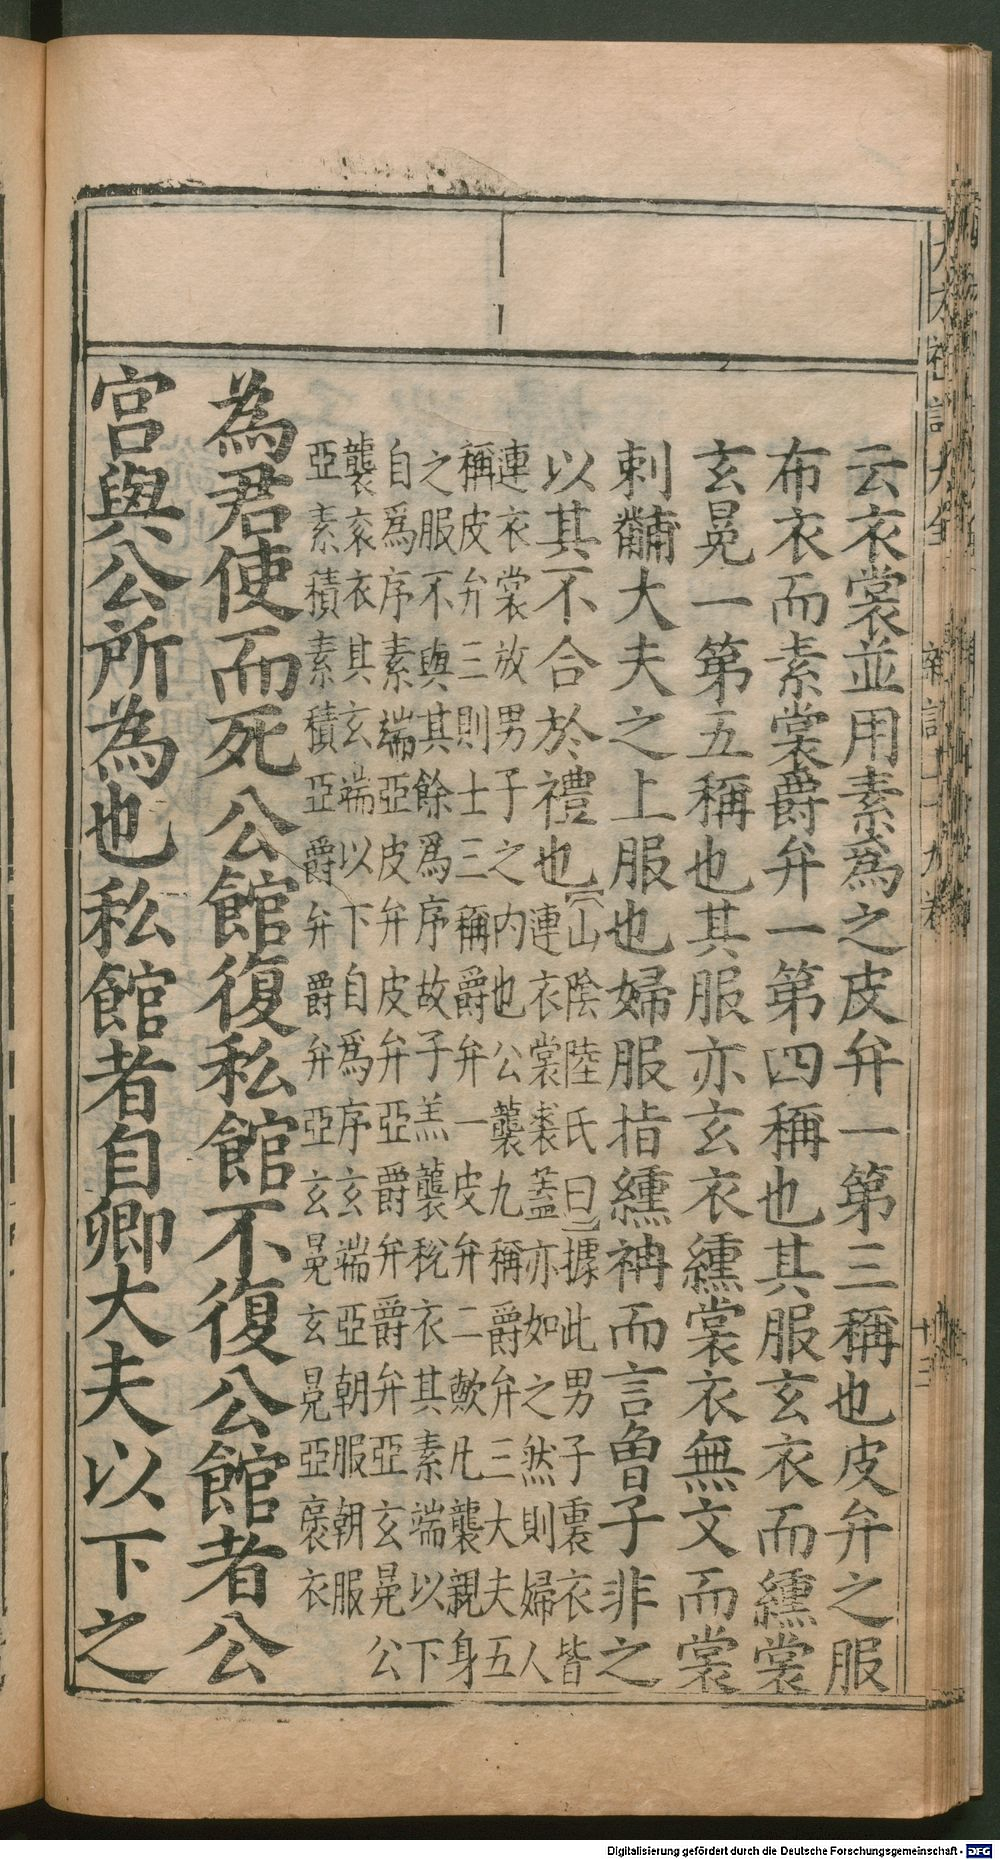 云衣裳並用素為之皮弁一第三稱也皮弁之服
布衣而素裳爵弁一第四稱也其服玄衣而纁裳
玄冕一第五稱也其服亦玄衣纁裳衣無文而裳
刺黼大夫之上服也婦服指纁袡而言曾子非之
以其不合於禮也
山陰陸氏曰據此男子裏衣皆
連衣裳裘蓋亦如之然則婦人
連衣裳放男子之内也公襲九稱爵弁三大夫五
稱皮弁三則士三稱爵弁一皮弁二歟凡襲親身
之服不與其餘爲序故子羔襲稅衣其素端以下
自爲序素端亞皮弁皮弁亞爵弁爵弁亞玄冕公
襲衮衣其玄端以下自爲序玄端亞朝服朝服
亞素積素積亞爵弁爵弁亞玄冕玄冕亞褒衣
為君使而死公館復私館不復公館者公
宮與公所為也私館者自卿大夫以下之
十三
Digitalisierung gefördert durch die Deutsche Forschungsgemeinschaft - DFG